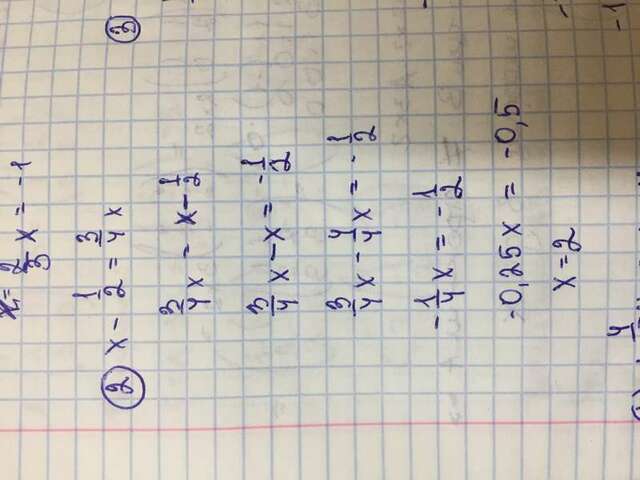 2/3 x = -1
② x - 1/2 = 3/4 x
③
3/4 x = x - 1/2
3/4 x - x = -1/2
3/4 x - 4/4 x = -1/2
-1/4 x = -1/2
-0,25x = -0,5
x = 2
-1
4